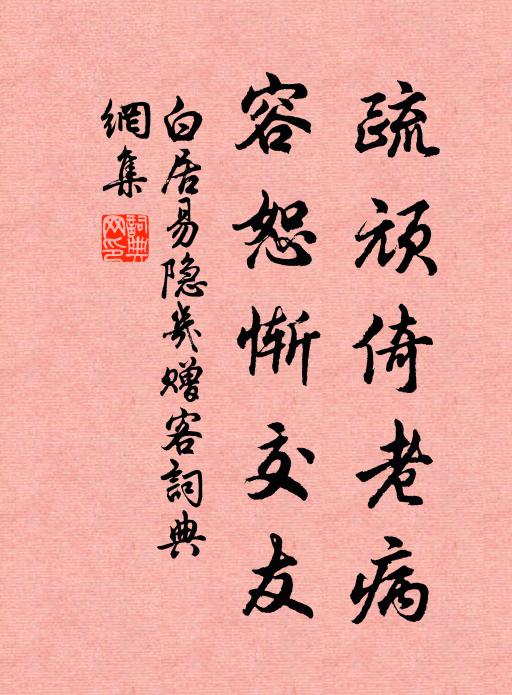 疏頑倚老病
容恕惭交友
白居易隐幾赠客詞典
網集
詞典
网印